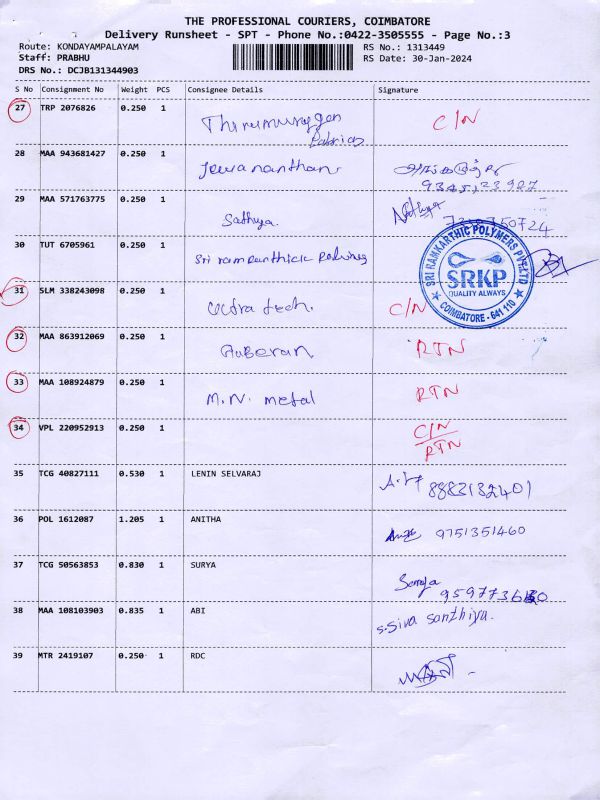 THE PROFESSIONAL COURIERS, COIMBATORE
Delivery Runsheet - SPT - Phone No.:0422-3505555 - Page No.:3
Route: KONDAYAMPALAYAM
RS No.: 1313449
Staff: PRABHU
RS Date: 30-Jan-2024
DRS No.: DCJB131344903
S No Consignment No Weight PCS Consignee Details Signature
27 TRP 2076826 0.250 1 C/N
28 MAA 943681427 0.250 1 Jeevananthan
29 MAA 571763775 0.250 1 Sathya.
30 TUT 6705961 0.250 1
SRI RAMKARTHIC POLYMERS PVT LTD
SRKP
QUALITY ALWAYS
COIMBATORE - 641 110
31 SLM 338243098 0.250 1 Ultra tech. C/N
32 MAA 863912069 0.250 1 RTN
33 MAA 108924879 0.250 1 M.N. metal RTN
34 VPL 220952913 0.250 1 C/N
RTN
35 TCG 40827111 0.530 1 LENIN SELVARAJ 8883182401
36 POL 1612087 1.205 1 ANITHA 9751351460
37 TCG 50563853 0.830 1 SURYA Surya
38 MAA 108103903 0.835 1 ABI S.Siva Santhiya.
39 MTR 2419107 0.250 1 RDC